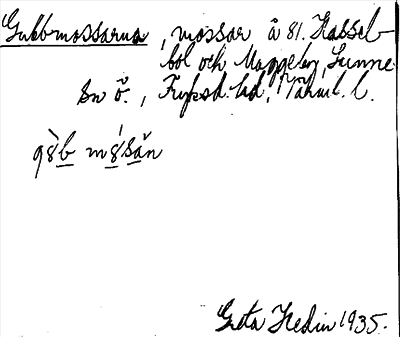 Gubbmossarna, mossar å 81. Hassel-
bol och Maggeby, Sunne
sn ö., Fryksd. hd, Värml. l.
Greta Hedin 1935.